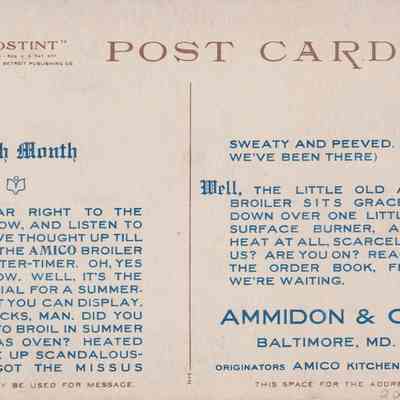 OSTINT"
DETROIT PUBLISHING CO
POST CARD
h Month
AR RIGHT TO THE
OW, AND LISTEN TO
VE THOUGHT UP TILL
THE AMICO BROILER
TER-TIMER. OH, YES
OW. WELL, IT'S THE
IAL FOR A SUMMER-
T YOU CAN DISPLAY.
CKS, MAN. DID YOU
TO BROIL IN SUMMER
AS OVEN? HEATED
E UP SCANDALOUS-
GOT THE MISSUS
Y BE USED FOR MESSAGE.
SWEATY AND PEEVED.
WE'VE BEEN THERE)
Well, THE LITTLE OLD A
BROILER SITS GRACE
DOWN OVER ONE LITTL
SURFACE BURNER, A
HEAT AT ALL, SCARCEL
US? ARE YOU ON? REA
THE ORDER BOOK, F
WE'RE WAITING.
AMMIDON & C
BALTIMORE, MD.
ORIGINATORS AMICO KITCHEN
THIS SPACE FOR THE ADDRE